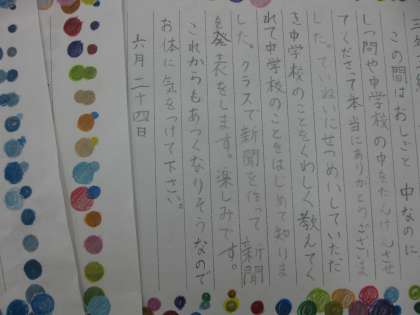 この間はおしごと中なのに
しつ問や中学校の中をたんけんさせ
てくださって本当にありがとうございま
した。ていねいにせつめいしていただ
き中学校のことをくわしく教えてく
れて中学校のことをはじめて知りま
した。クラスで新聞を作って新聞
を発表をします。楽しみです。
これからもあつくなりそうなので
お体に気をつけて下さい。
六月二十四日